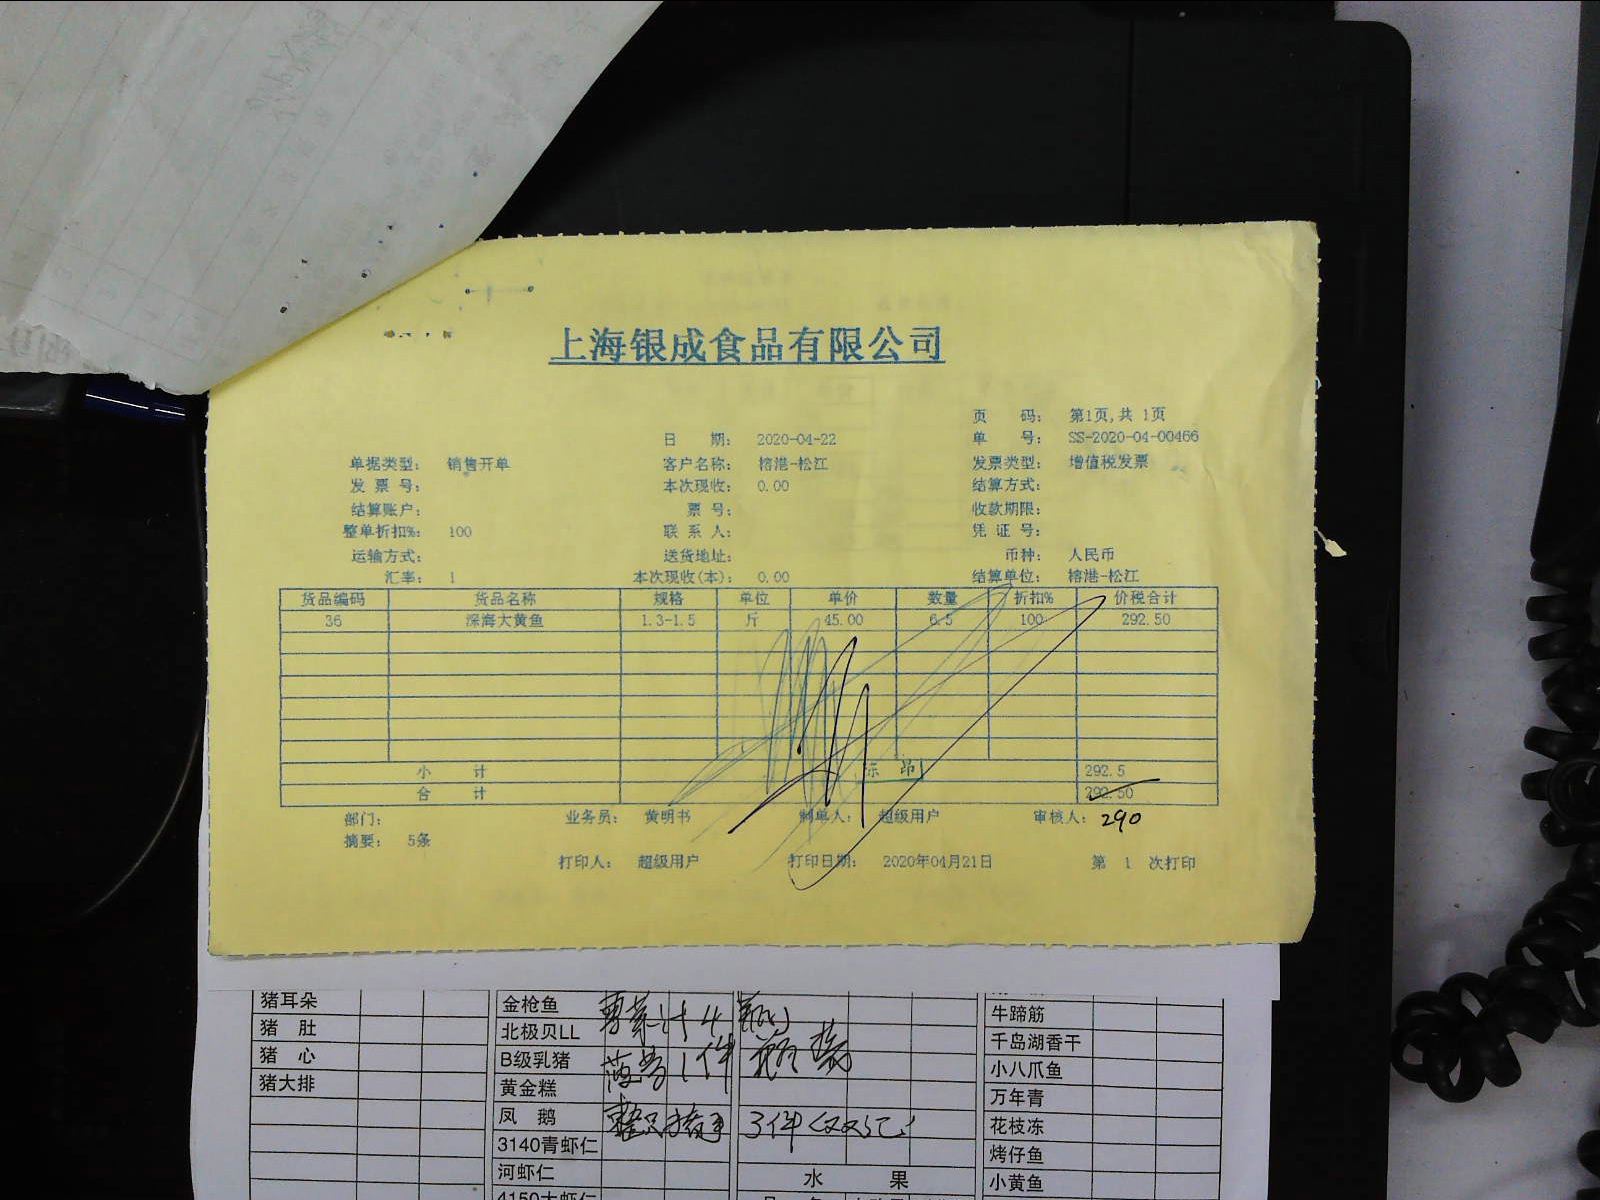 上海银成食品有限公司
页 码： 第1页,共 1页
日 期： 2020-04-22 单 号： SS-2020-04-00466
单据类型： 销售开单 客户名称： 榕港-松江 发票类型： 增值税发票
发 票 号： 本次现收： 0.00 结算方式：
结算账户： 票 号： 收款期限：
整单折扣%： 100 联 系 人： 凭 证 号：
运输方式： 送货地址： 币种： 人民币
汇率： 1 本次现收(本)： 0.00 结算单位： 榕港-松江
货品编码 货品名称 规格 单位 单价 数量 折扣% 价税合计
36 深海大黄鱼 1.3-1.5 斤 45.00 6.5 100 292.50
小 计 292.5
合 计 292.50
部门： 业务员： 黄明书 制单人： 超级用户 审核人： 290
摘要： 5条
打印人： 超级用户 打印日期： 2020年04月21日 第 1 次打印
猪耳朵 金枪鱼 牛蹄筋
猪 肚 北极贝LL 千岛湖香干
猪 心 B级乳猪 1件 小八爪鱼
猪大排 黄金糕 万年青
凤 鹅 3件 花枝冻
3140青虾仁 烤仔鱼
河虾仁 水 果 小黄鱼